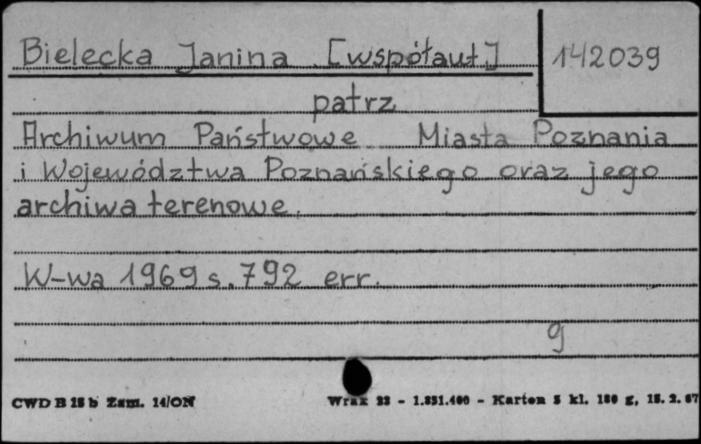 Bielecka Janina [współaut.] 142039
patrz
Archiwum Państwowe Miasta Poznania
i Województwa Poznańskiego oraz jego
archiwa terenowe.
W-wa 1969 s. 792 err.
g
CWD B 18 b Zam. 14/ON Wrzx 23 - 1.831.400 - Karton 5 kl. 180 g, 18. 2. 67